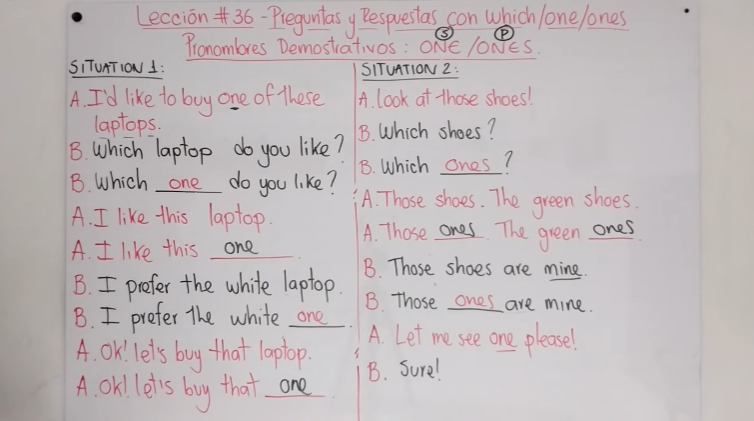 Lección # 36 - Preguntas y Respuestas con which/one/ones
Pronombres Demostrativos: ONE/ONES.
S P
SITUATION 1:
A. I'd like to buy one of these
laptops.
B. Which laptop do you like?
B. Which one do you like?
A. I like this laptop.
A. I like this one
B. I prefer the white laptop.
B. I prefer the white one.
A. Ok! let's buy that laptop.
A. Ok! let's buy that one.
SITUATION 2:
A. Look at those shoes!
B. Which shoes?
B. Which ones?
A. Those shoes. The green shoes.
A. Those ones. The green ones.
B. Those shoes are mine.
B. Those ones are mine.
A. Let me see one please!
B. Sure!